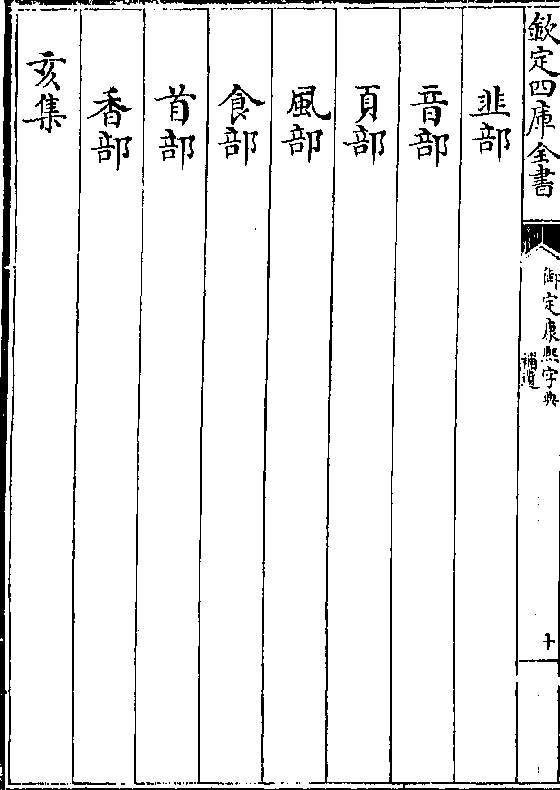 欽定四庫全書
御定康熙字典
補遺
十
韭部
音部
頁部
風部
食部
首部
香部
亥集